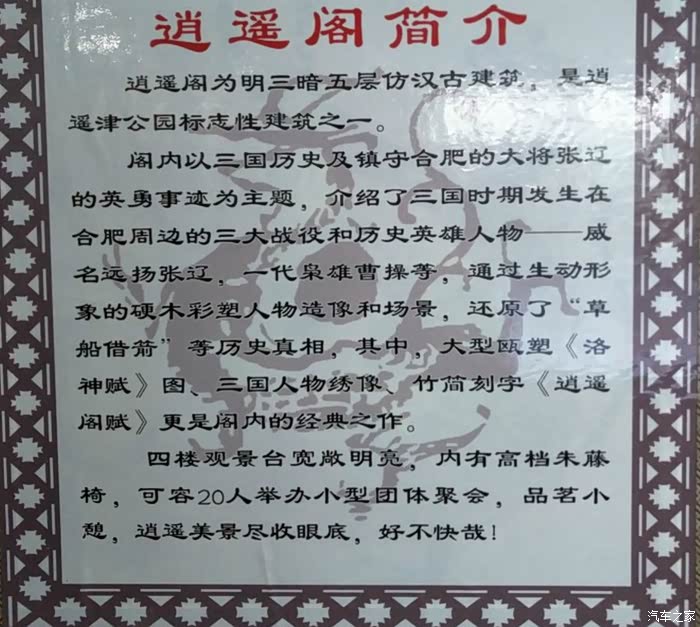 逍遥阁简介
逍遥阁为明三暗五层仿汉古建筑，是逍
遥津公园标志性建筑之一。
阁内以三国历史及镇守合肥的大将张辽
的英勇事迹为主题，介绍了三国时期发生在
合肥周边的三大战役和历史英雄人物——威
名远扬张辽，一代枭雄曹操等，通过生动形
象的硬木彩塑人物造像和场景，还原了“草
船借箭”等历史真相，其中，大型瓯塑《洛
神赋》图、三国人物绣像、竹简刻字《逍遥
阁赋》更是阁内的经典之作。
四楼观景台宽敞明亮，内有高档朱藤
椅，可容20人举办小型团体聚会，品茗小
憩，逍遥美景尽收眼底，好不快哉！
汽车之家